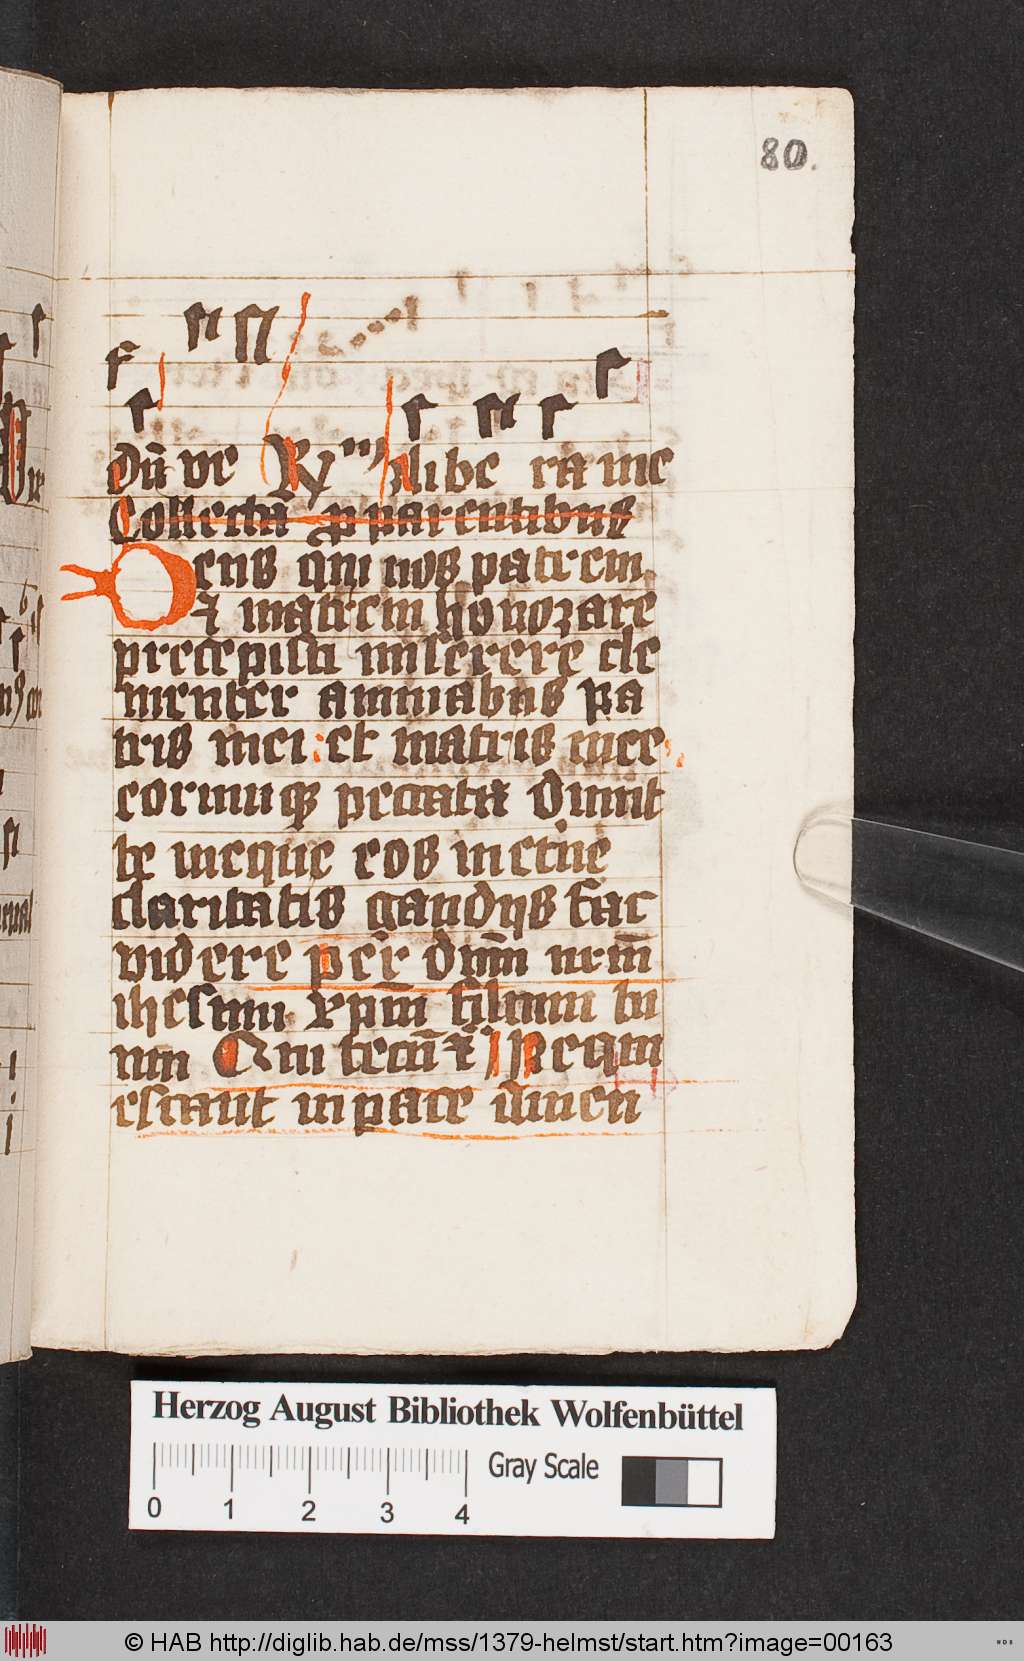 80.
Dū ve R̃ libe ra me
Collecta p parentibus
Deus qui nos patrem
⁊ matrem honorare
precepisti miserere cle
menter animabus pa
tris mei et matris mee
eorumq; peccata dimit
te meque eos in etne
claritatis gaudijs fac
videre per dnm nrm̄
ihesum xpm̄ filium tu
um Qui tecū ⁊ Requi
escant in pace Amen
Herzog August Bibliothek Wolfenbüttel
0 1 2 3 4
Gray Scale
© HAB http://diglib.hab.de/mss/1379-helmst/start.htm?image=00163